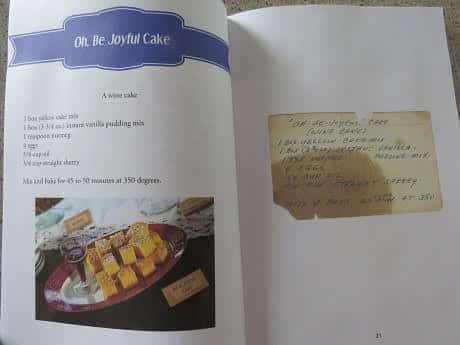 Oh, Be Joyful Cake
A wine cake
1 box yellow cake mix
1 box (3-3/4 oz.) instant vanilla pudding mix
1 teaspoon nutmeg
4 eggs
3/4 cup oil
3/4 cup straight sherry
Mix and bake for 45 to 50 minutes at 350 degrees.
"OH BE JOYFUL" CAKE
(WINE CAKE)
1 BOX YELLOW CAKE MIX
1 BOX INSTANT VANILLA
1 TSP NUTMEG PUDDING MIX
4 EGGS
CUP OIL
CUP STRAIGHT SHERRY
MIX & BAKE AT 350
21